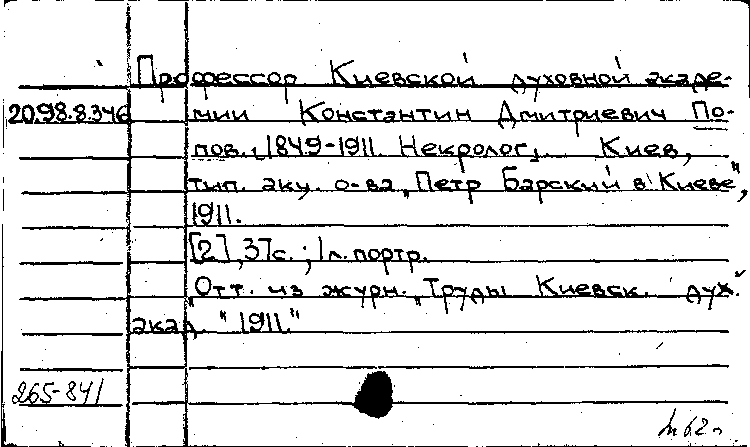 Профессор Киевской духовной акаде-
20.98.8.346 мии Константин Дмитриевич По-
пов. 1849-1911. Некролог. Киев,
тип. акц. о-ва „Петр Барский в Киеве",
1911.
[2], 37 с.; 1 л. портр.
Отт. из журн. „Труды Киевск. дух.
акад. " 1911."
265-841